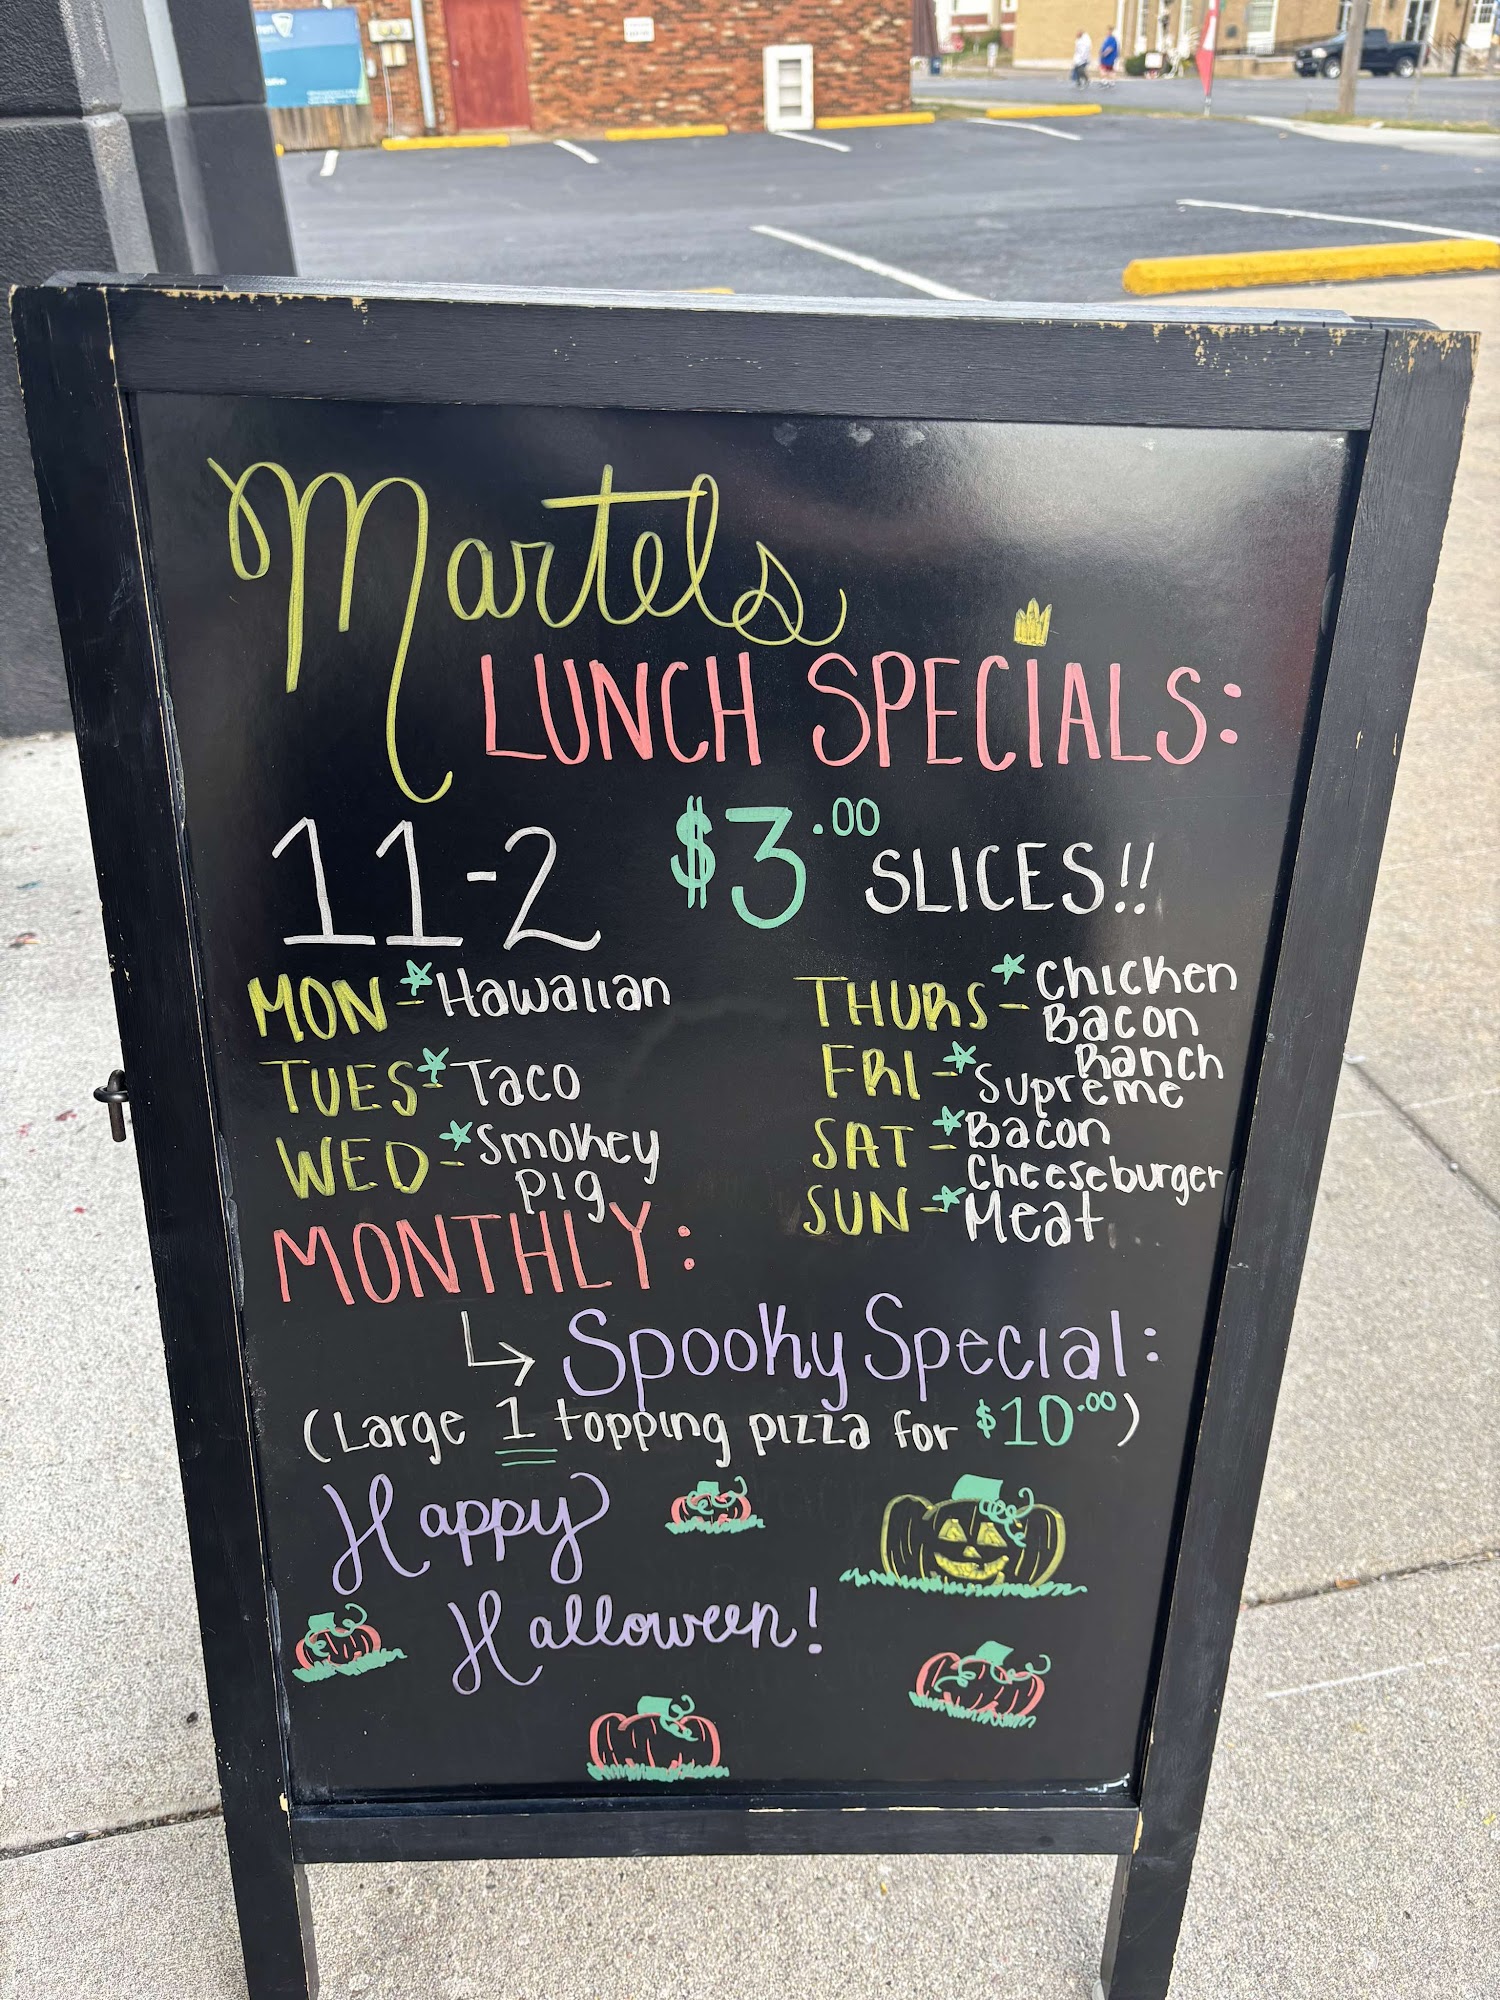 Martels
LUNCH SPECIALS:
11-2 $3.00 SLICES!!
MON - Hawaiian
TUES - Taco
WED - Smokey
pig
THURS - Chicken
Bacon
Ranch
FRI - Supreme
SAT - Bacon
Cheeseburger
SUN - Meat
MONTHLY:
Spooky Special:
(Large 1 topping pizza for $10.00)
Happy
Halloween!